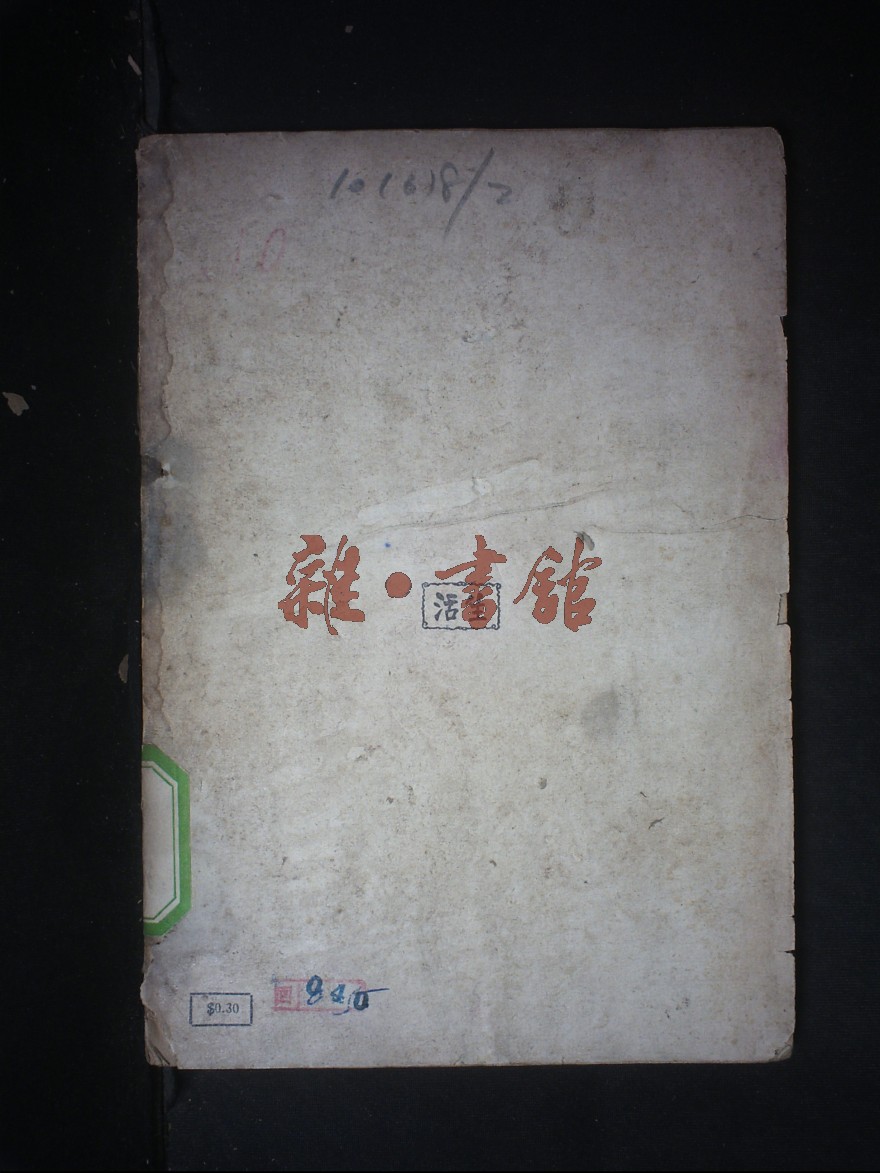 101618/2
雜·書館
活生
$0.30
840